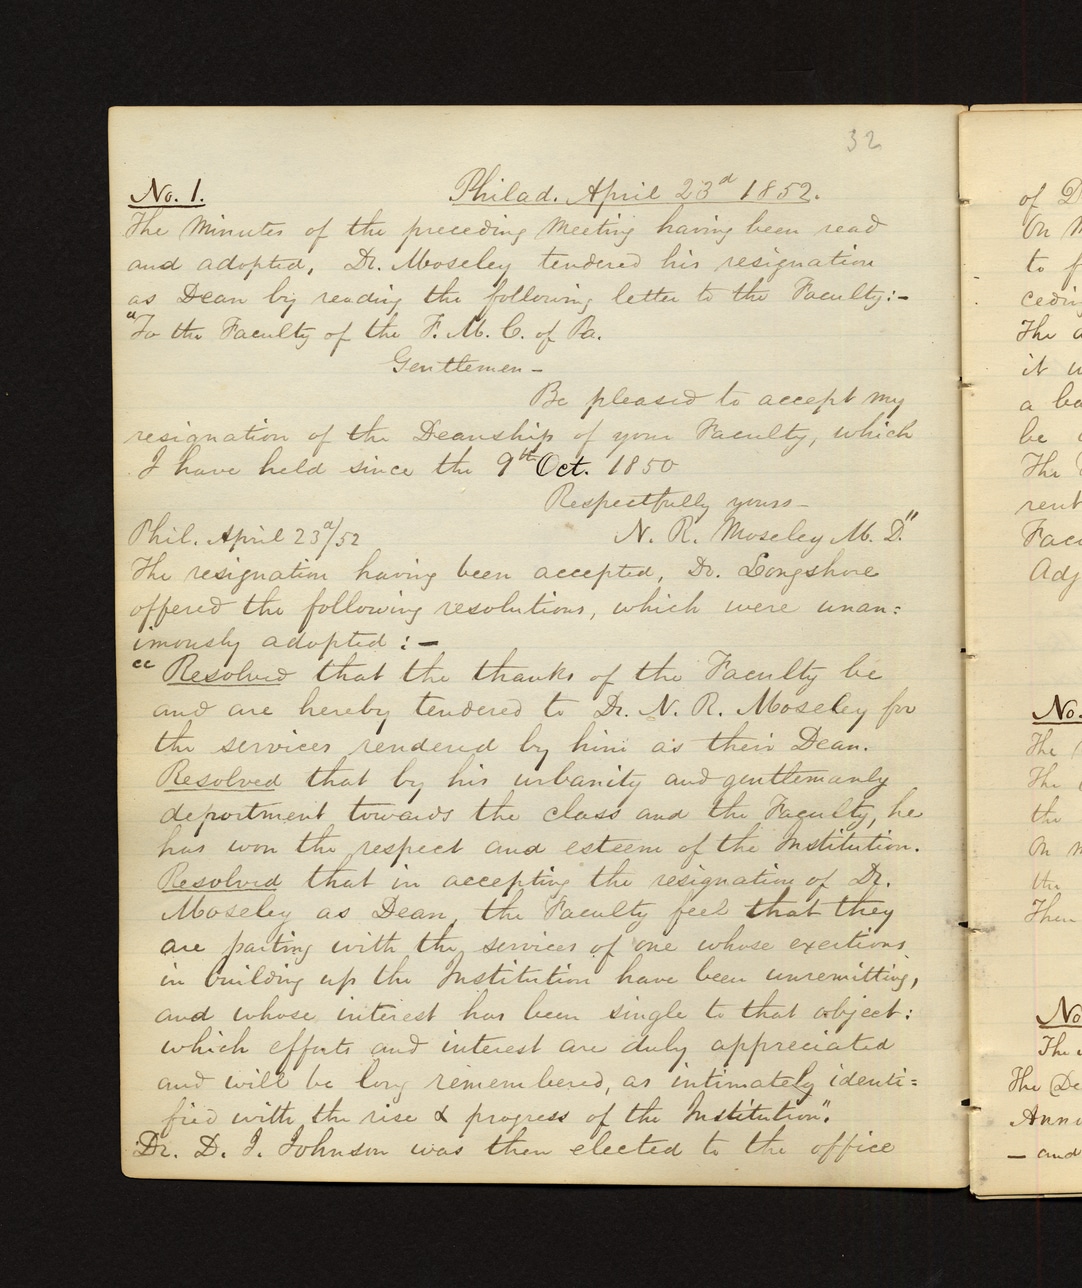 32
No. 1. Philad. April 23d 1852.
The Minutes of the preceding Meeting having been read
and adopted, Dr. Moseley tendered his resignation
as Dean by reading the following letter to the Faculty:-
"To the Faculty of the F. M. C. of Pa.
Gentlemen-
Be pleased to accept my
resignation of the Deanship of your Faculty, which
I have held since the 9th Oct. 1850
Respectfully yours-
Phil. April 23d/52 N. R. Moseley M. D."
The resignation having been accepted, Dr. Longshore
offered the following resolutions, which were unan=
imously adopted :-
"Resolved that the thanks of the Faculty be
and are hereby tendered to Dr. N. R. Moseley for
the services rendered by him as their Dean.
Resolved that by his urbanity and gentlemanly
deportment towards the class and the Faculty, he
has won the respect and esteem of the Institution.
Resolved that in accepting the resignation of Dr.
Moseley as Dean, the Faculty feel that they
are parting with the services of one whose exertions
in building up the Institution have been unremitting,
and whose interest has been single to that object:
which efforts and interest are duly appreciated
and will be long remembered, as intimately identi=
fied with the rise & progress of the Institution".
Dr. D. J. Johnson was then elected to the office
of D
On M
to f
ceding
The a
it w
a ba
be
The
rent
Facu
Adj
No.
The
The
the
On m
the
Then
No
The
The De
Anna
- and